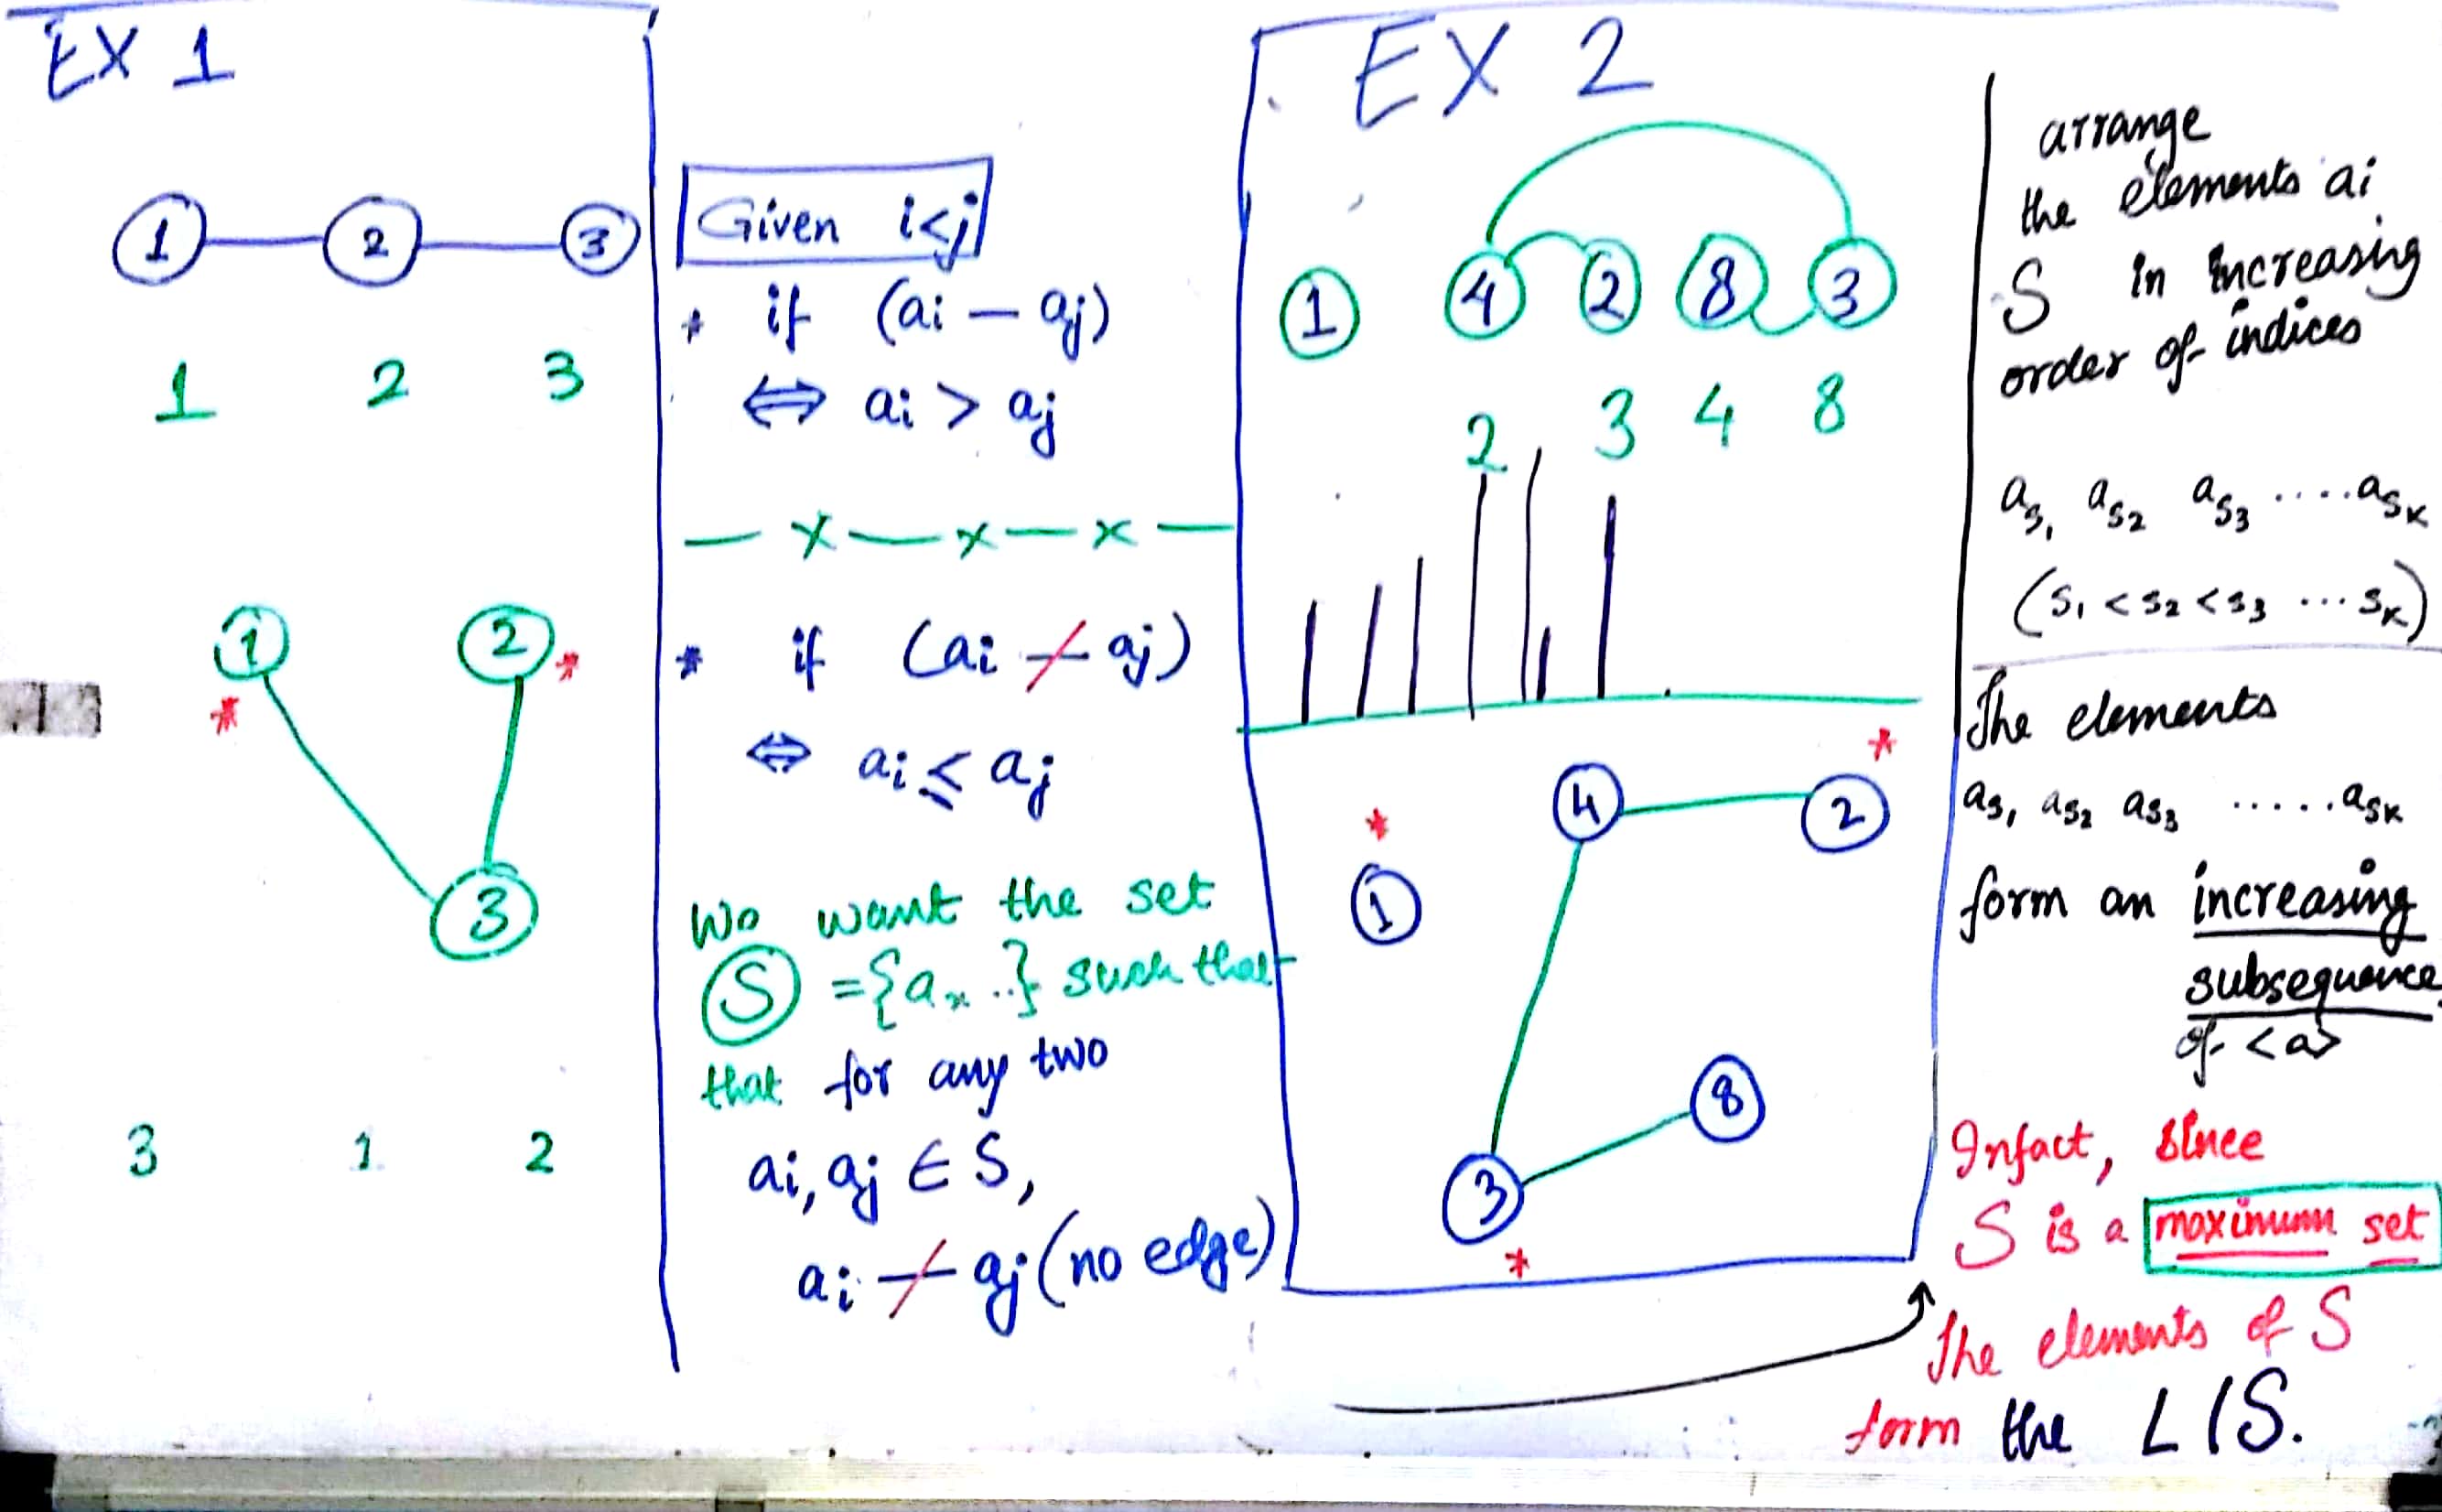 EX 1
1 2 3
1 2 3
1 2
* *
3
3 1 2
Given i<j
* if (ai — aj)
⇔ ai > aj
— x — x — x —
* if (ai -/- aj)
⇔ ai ≤ aj
We want the set
S = {ax ..} such that
that for any two
ai, aj ∈ S,
ai -/- aj (no edge)
EX 2
1 4 2 8 3
2 3 4 8
*
4 2
*
1
8
3
*
arrange
the elements ai
S in increasing
order of indices
as1 as2 as3 .....asK
(s1 < s2 < s3 ... sK)
The elements
as1 as2 as3 ......asK
form an increasing
subsequence
of <a>
Infact, since
S is a maximum set
The elements of S
form the LIS.